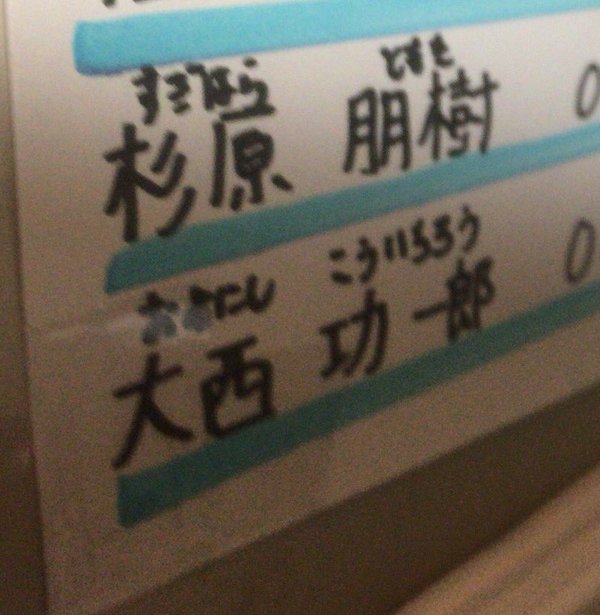 すぎはら ともき
杉原 朋樹 0
おおにし こういちろう
大西 功一郎 0